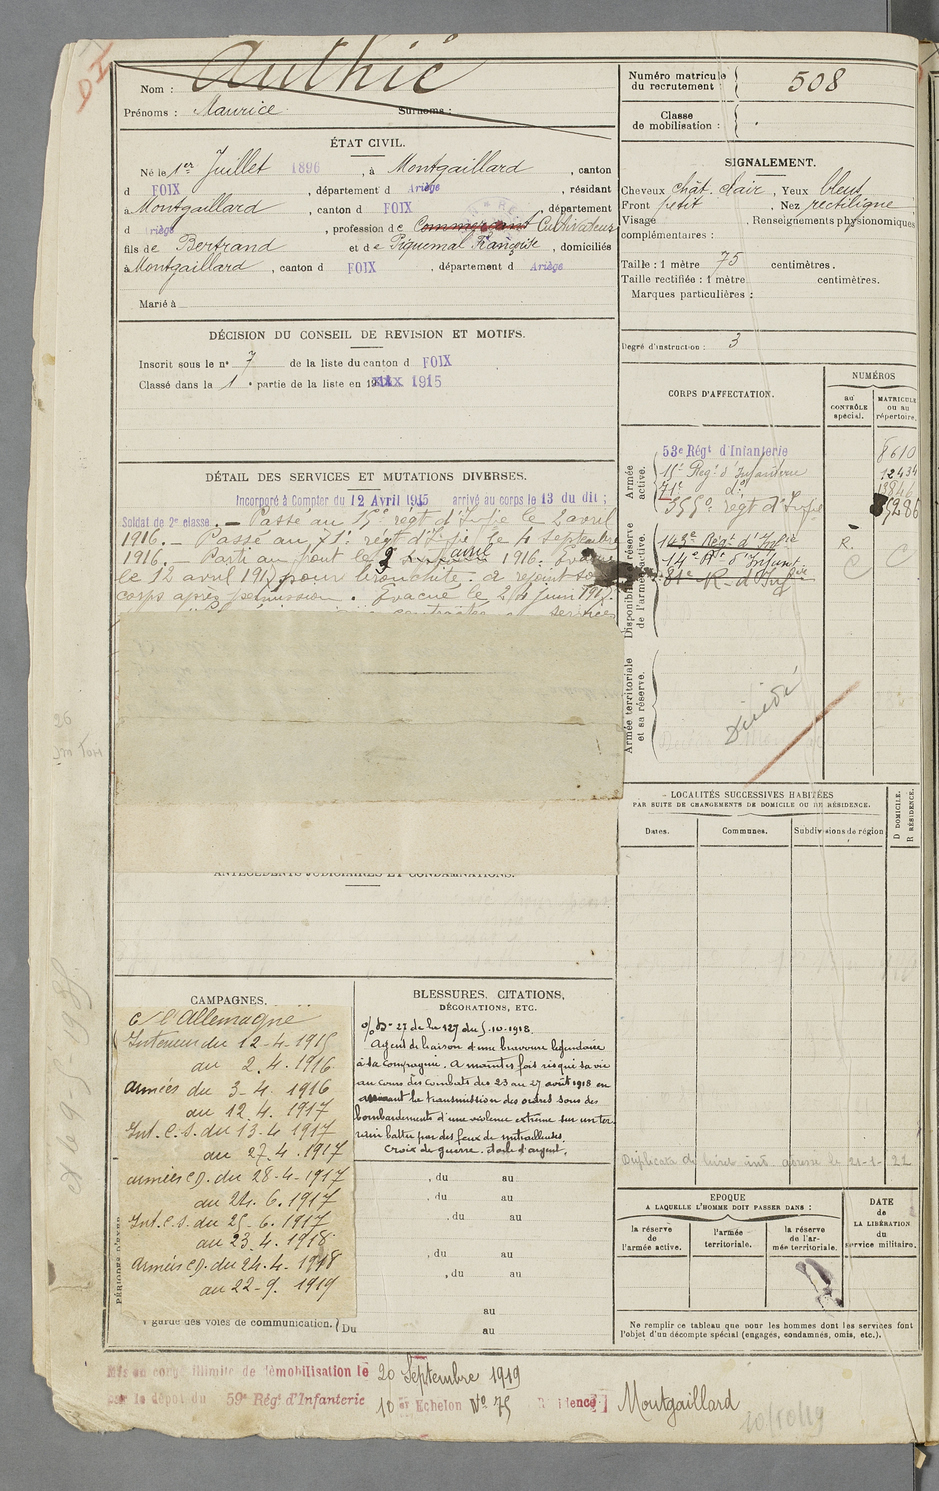 Nom : Authié
Prénoms : Maurice Surnoms :
Numéro matricule du recrutement : 508
Classe de mobilisation :
ÉTAT CIVIL.
Né le 1er Juillet 1896, à Montgaillard, canton
d FOIX, département d Ariège, résidant
à Montgaillard, canton d FOIX, département
d Ariège, profession de Commerçant Cultivateur
fils de Bertrand et de Piquemal Françoise, domiciliés
à Montgaillard, canton d FOIX, département d Ariège
Marié à
SIGNALEMENT.
Cheveux chât. clair, Yeux bleus
Front petit, Nez rectiligne
Visage, Renseignements physionomiques
complémentaires :
Taille : 1 mètre 75 centimètres.
Taille rectifiée : 1 mètre centimètres.
Marques particulières :
Degré d'instruction : 3
DÉCISION DU CONSEIL DE REVISION ET MOTIFS.
Inscrit sous le n° 7 de la liste du canton d FOIX
Classé dans la 1e partie de la liste en 1915
CORPS D'AFFECTATION.
NUMÉROS
au CONTRÔLE spécial.
MATRICULE ou au répertoire.
Armée active.
53e Régt d'Infanterie 8610
15e Regt d'Infanterie 12434
71e do
355e régt d'Infie
Disponibilité et réserve de l'armée active.
143e Regt d'Infie R.
14e Rt d'Infant C C
81e R. d'Infie
Armée territoriale et sa réserve.
DÉTAIL DES SERVICES ET MUTATIONS DIVERSES.
Incorporé à Compter du 12 Avril 1915 arrivé au corps le 13 du dit ;
Soldat de 2e classe. — Passé au 15e régt d'Infie le 2 avril
1916. — Passé au 71e régt d'Infie le 4 Septembre
1916. — Parti au front le 3 avril 1916. Evacué
le 12 avril 1917 pour bronchite. a rejoint son
corps après permission. Evacué le 24 juin 1917.
contractée services
ANTÉCÉDENTS JUDICIAIRES ET CONDAMNATIONS.
LOCALITÉS SUCCESSIVES HABITÉES
PAR SUITE DE CHANGEMENTS DE DOMICILE OU DE RÉSIDENCE.
Dates. Communes. Subdivisions de région
D DOMICILE. R RÉSIDENCE.
Duplicata du livret adressé le 21-1-22
CAMPAGNES.
C/ l'Allemagne
Intérieur du 12-4-1915
au 2.4.1916
Armées du 3-4 1916
au 12.4.1917
Int. C.S. du 13-4 1917
au 27.4.1917
armées C.D. du 28-4-1917
au 24.6.1917
Int. C.S. du 25-6.1917
au 23.4.1918
Armées C.D. du 24.4-1918
au 22-9. 1919
PÉRIODES D'EXER
garde des voies de communication. Du
BLESSURES, CITATIONS,
DÉCORATIONS, ETC.
o/ Bn 27 de la 127 du 5.10.1918.
Agent de liaison d'une bravoure légendaire
à sa compagnie. A maintes fois risqué sa vie
au cours des combats des 23 au 27 août 1918 en
assurant la transmission des ordres sous des
bombardements d'une violence extrême sur un ter-
rain battu par des feux de mitrailleuses.
Croix de guerre. étoile d'argent.
, du au
, du au
, du au
, du au
au
au
EPOQUE
A LAQUELLE L'HOMME DOIT PASSER DANS :
la réserve de l'armée active.
l'armée territoriale.
la réserve de l'armée territoriale.
DATE de LA LIBÉRATION du service militaire.
Ne remplir ce tableau que pour les hommes dont les services font
l'objet d'un décompte spécial (engagés, condamnés, omis, etc.).
Mis en congé illimité de démobilisation le 20 Septembre 1919
par le dépôt du 59e Régt d'Infanterie 10er Echelon No 75 Résidence Montgaillard